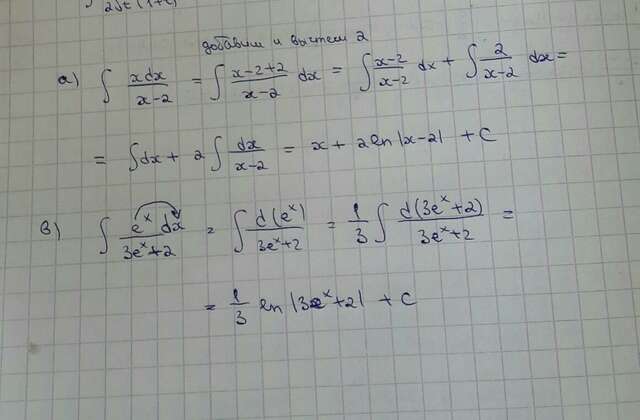 2√t (1+t)
добавим и вычтем 2
а) ∫ x dx / x-2 = ∫ x-2+2 / x-2 dx = ∫ x-2 / x-2 dx + ∫ 2 / x-2 dx =
= ∫ dx + 2 ∫ dx / x-2 = x + 2 ln |x-2| + C
в) ∫ e^x dx / 3e^x+2 = ∫ d(e^x) / 3e^x+2 = 1/3 ∫ d(3e^x+2) / 3e^x+2 =
= 1/3 ln |3e^x+2| + C